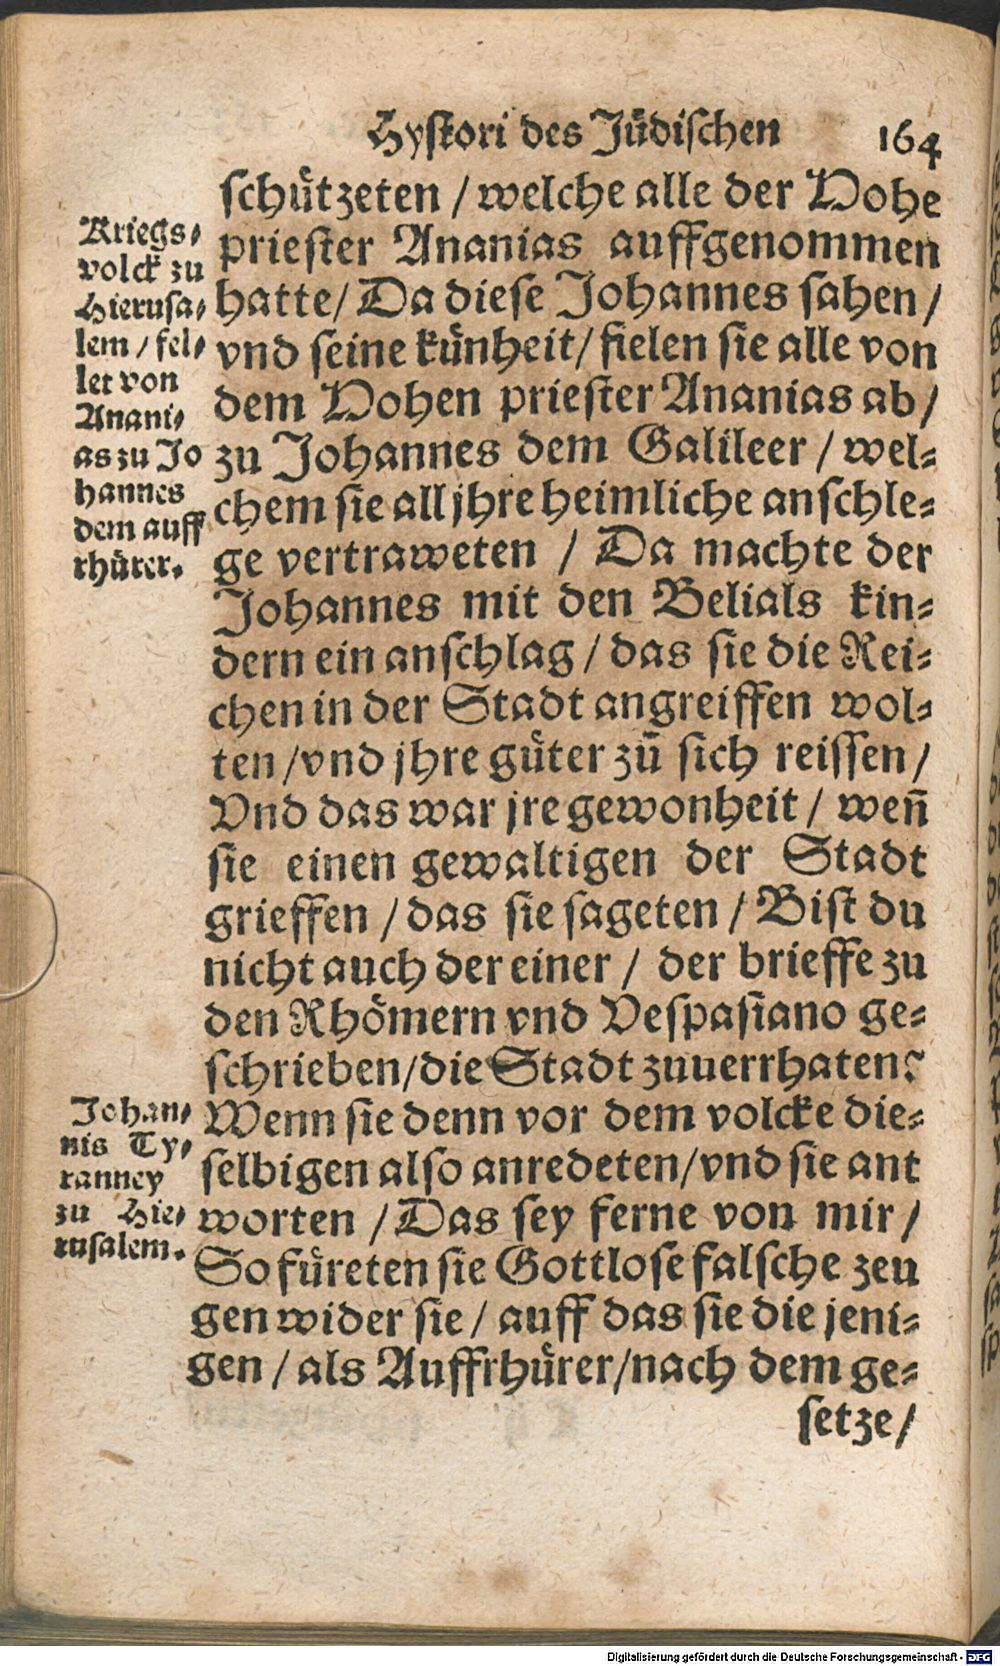 Hystori des Jüdischen 164
schützeten / welche alle der Hohe
priester Ananias auffgenommen
hatte / Da diese Johannes sahen /
vnd seine künheit / fielen sie alle von
dem Hohen priester Ananias ab /
zu Johannes dem Galileer / wel⸗
chem sie all jhre heimliche anschle⸗
ge vertraweten / Da machte der
Johannes mit den Belials kin⸗
dern ein anschlag / das sie die Rei⸗
chen in der Stadt angreiffen wol⸗
ten / vnd jhre güter zū sich reissen /
Vnd das war jre gewonheit / wen̄
sie einen gewaltigen der Stadt
grieffen / das sie sageten / Bist du
nicht auch der einer / der brieffe zu
den Rhömern vnd Vespasiano ge⸗
schrieben / die Stadt zuuerrhaten?
Wenn sie denn vor dem volcke die⸗
selbigen also anredeten / vnd sie ant
worten / Das sey ferne von mir /
So füreten sie Gottlose falsche zeu
gen wider sie / auff das sie die jeni⸗
gen / als Auffrhürer / nach dem ge⸗
setze /
Kriegs⸗
volck zu
Hierusa⸗
lem / fel⸗
let von
Anani⸗
as zu Jo
hannes
dem auff
rhürer.
Johan⸗
nis Ty⸗
ranney
zu Hie⸗
rusalem.
Digitalisierung gefördert durch die Deutsche Forschungsgemeinschaft - DFG